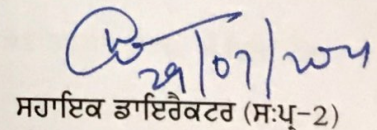 29/07/2024
ਸਹਾਇਕ ਡਾਇਰੈਕਟਰ (ਸ:ਪ੍ਰ-2)